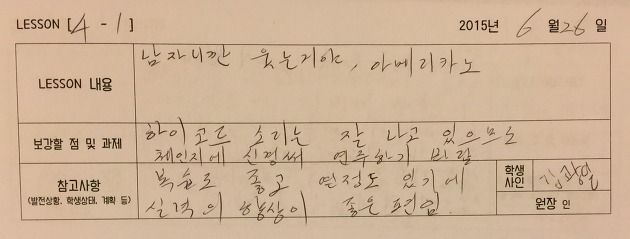 LESSON [4 - 1] 2015년 6월 26일
LESSON 내용
남자니깐 웃는거야, 아메리카노
보강할 점 및 과제
하이코드 소리는 잘 나고 있으므로
체인지에 신경써 연주하기 바람
참고사항
(발전상황, 학생상태, 계획 등)
복습도 좋고 열정도 있기에
실력의 향상이 좋은 편임.
학생
사인
김광일
원장 인